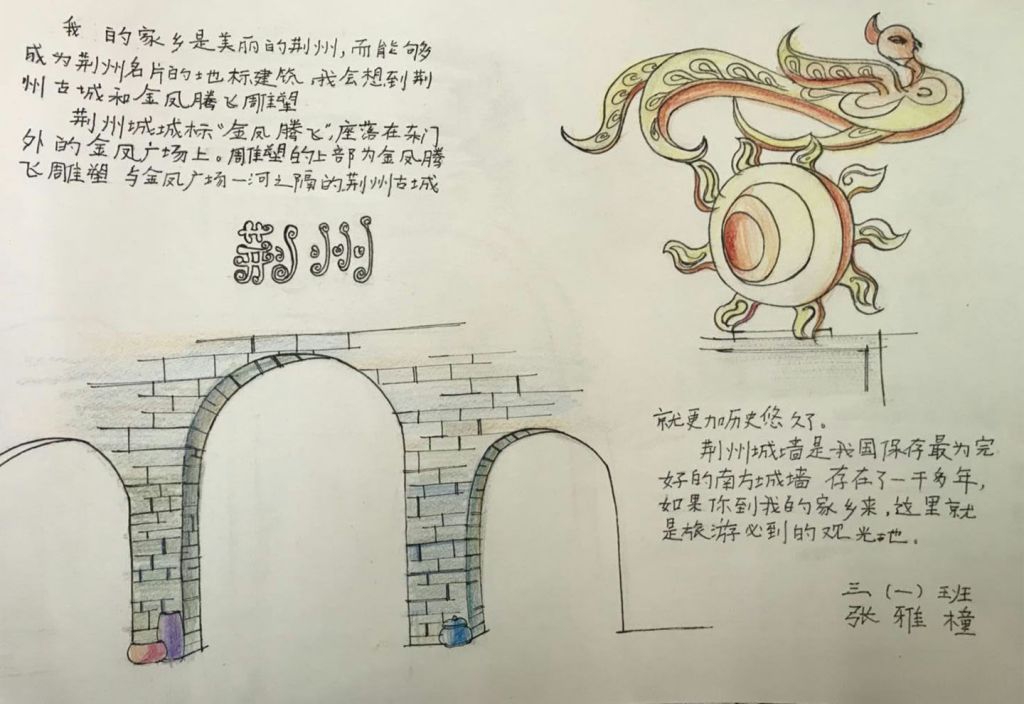 我 的家乡是美丽的荆州,而能够
成为荆州名片的地标建筑 我会想到荆
州古城和金凤腾飞雕塑
荆州城城标“金凤腾飞”,座落在东门
外的金凤广场上。雕塑的上部为金凤腾
飞雕塑 与金凤广场一河之隔的荆州古城
荆州
就更加历史悠久了。
荆州城墙是我国保存最为完
好的南方城墙 存在了一千多年,
如果你到我的家乡来,这里就
是旅游必到的观光地。
三(一)班
张雅橦